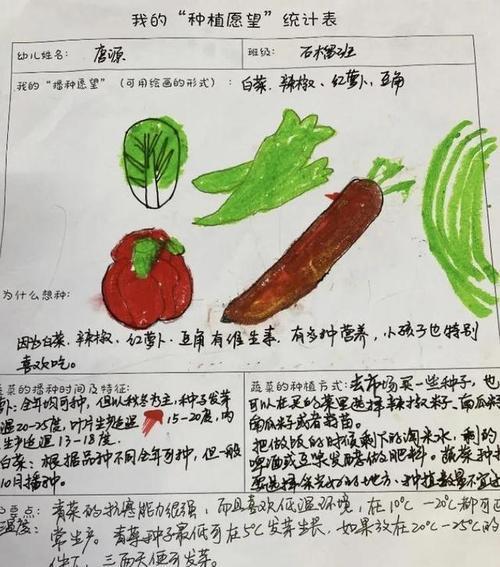 我的“种植愿望”统计表
幼儿姓名: 唐源
班级: 石榴班
我的“播种愿望”(可用绘画的形式): 白菜、辣椒、红萝卜、豆角
为什么想种:
因为白菜、辣椒、红萝卜、豆角有维生素,有多种营养,小孩子也特别
喜欢吃。
蔬菜的播种时间及特征:
卜: 全年均可种,但以秋冬为主,种子发芽
温20-25度,叶片生长适温15-20度,内
生长适温13-18度.
白菜: 根据品种不同全年可种,但一般
10月播种。
蔬菜的种植方式: 去市场买一些种子,也
可以在买的菜里选择辣椒籽、南瓜
南瓜籽或者蒜苗
把做饭的时候剩下的淘米水,剩的
啤酒或豆浆发酵做肥料。蔬菜种
选择 光好的地方,种植数量不宜
要点: 青菜的抗寒能力很强,而且喜欢低温环境,在10℃-20℃都可正
温度: 常生产。青菜种子最低可在5℃发芽生长,如果放在20℃-25℃的
件下,三两天便可发芽。